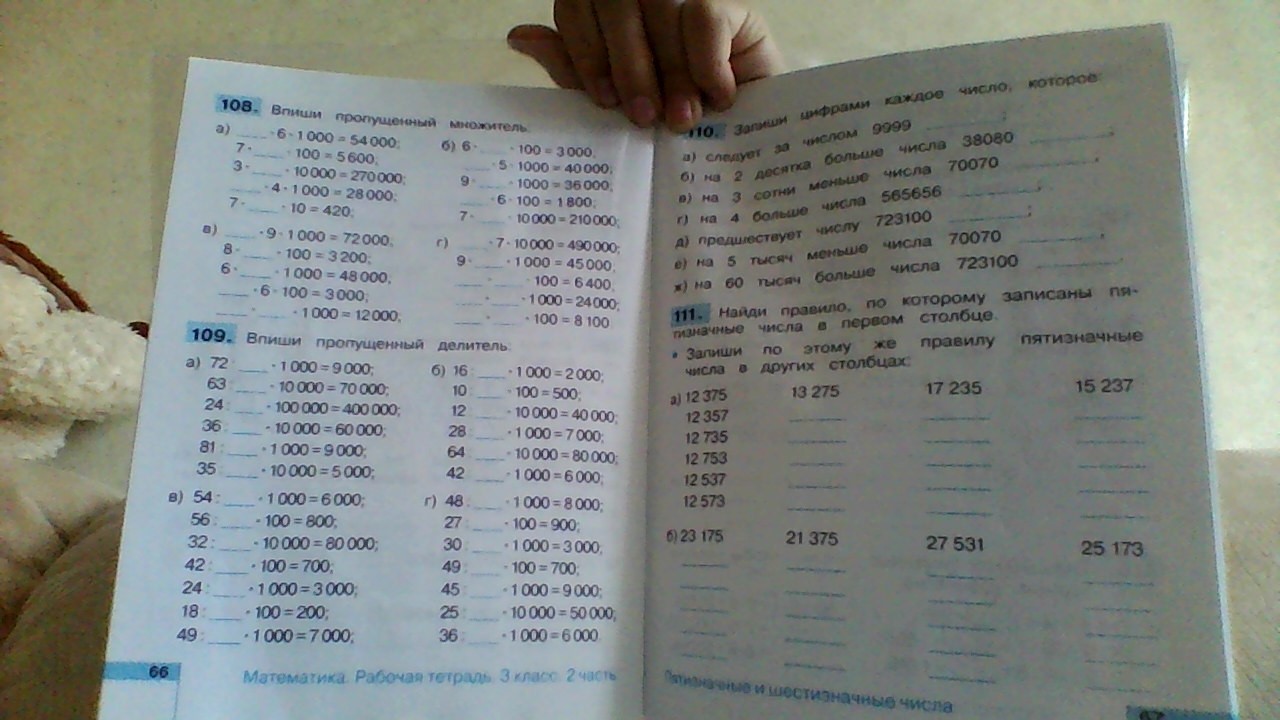 108. Впиши пропущенный множитель.
а) ____ · 6 · 1 000 = 54 000;
7 · ____ · 100 = 5 600;
3 · ____ · 10 000 = 270 000;
____ · 4 · 1 000 = 28 000;
7 · ____ · 10 = 420;
б) 6 · ____ · 100 = 3 000;
____ · 5 · 1000 = 40 000;
9 · ____ · 1000 = 36 000;
____ · 6 · 100 = 1 800;
7 · ____ · 10 000 = 210 000;
в) ____ · 9 · 1 000 = 72 000;
8 · ____ · 100 = 3 200;
6 · ____ · 1 000 = 48 000;
____ · 6 · 100 = 3 000;
____ · ____ · 1 000 = 12 000;
г) ____ · 7 · 10 000 = 490 000;
9 · ____ · 1 000 = 45 000;
____ · ____ · 100 = 6 400;
____ · ____ · 1 000 = 24 000;
____ · ____ · 100 = 8 100.
109. Впиши пропущенный делитель:
а) 72 : ____ · 1 000 = 9 000;
63 : ____ · 10 000 = 70 000;
24 : ____ · 100 000 = 400 000;
36 : ____ · 10 000 = 60 000;
81 : ____ · 1 000 = 9 000;
35 : ____ · 10 000 = 5 000;
б) 16 : ____ · 1 000 = 2 000;
10 : ____ · 100 = 500;
12 : ____ · 10 000 = 40 000;
28 : ____ · 1 000 = 7 000;
64 : ____ · 10 000 = 80 000;
42 : ____ · 1 000 = 6 000;
в) 54 : ____ · 1 000 = 6 000;
56 : ____ · 100 = 800;
32 : ____ · 10 000 = 80 000;
42 : ____ · 100 = 700;
24 : ____ · 1 000 = 3 000;
18 : ____ · 100 = 200;
49 : ____ · 1 000 = 7 000;
г) 48 : ____ · 1 000 = 8 000;
27 : ____ · 100 = 900;
30 : ____ · 1 000 = 3 000;
49 : ____ · 100 = 700;
45 : ____ · 1 000 = 9 000;
25 : ____ · 10 000 = 50 000;
36 : ____ · 1 000 = 6 000.
66 Математика. Рабочая тетрадь. 3 класс. 2 часть
110. Запиши цифрами каждое число, которое:
а) следует за числом 9999 ____;
б) на 2 десятка больше числа 38080 ____;
в) на 3 сотни меньше числа 70070 ____;
г) на 4 больше числа 565656 ____;
д) предшествует числу 723100 ____;
е) на 5 тысяч меньше числа 70070 ____;
ж) на 60 тысяч больше числа 723100 ____.
111. Найди правило, по которому записаны пя-
тизначные числа в первом столбце.
• Запиши по этому же правилу пятизначные
числа в других столбцах:
а) 12 375 13 275 17 235 15 237
12 357
12 735
12 753
12 537
12 573
б) 23 175 21 375 27 531 25 173
Пятизначные и шестизначные числа